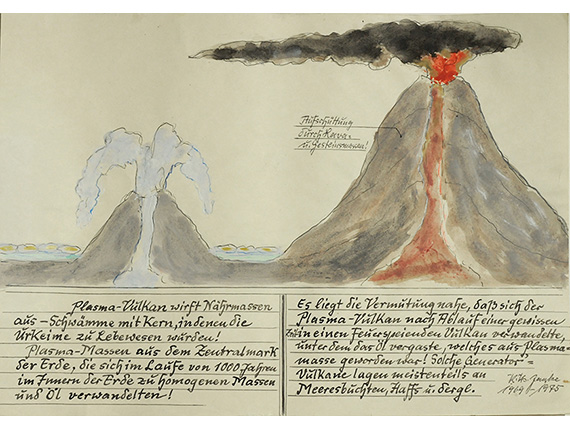 Aufschüttung
durch Lava-
u. Gesteinsmassen!
Plasma-Vulkan wirft Nährmassen
aus – Schwämme mit Kern, in denen die
Urkeime zu Lebewesen würden!
Plasma-Massen aus dem Zentralmark
der Erde, die sich im Laufe von 1000 Jahren
im Innern der Erde zu homogenen Massen
und Öl verwandelten!
Es liegt die Vermutung nahe, daß sich der
Plasma-Vulkan nach Ablauf einer gewissen
Zeit in einen Feuerspeienden Vulkan verwandelte,
unter dem das Öl vergaste, welches aus Plasma-
masse geworden war! Solche Generator-
Vulkane lagen meistenteils an
Meeresbuchten, Haffs u. dergl.
1969 1975